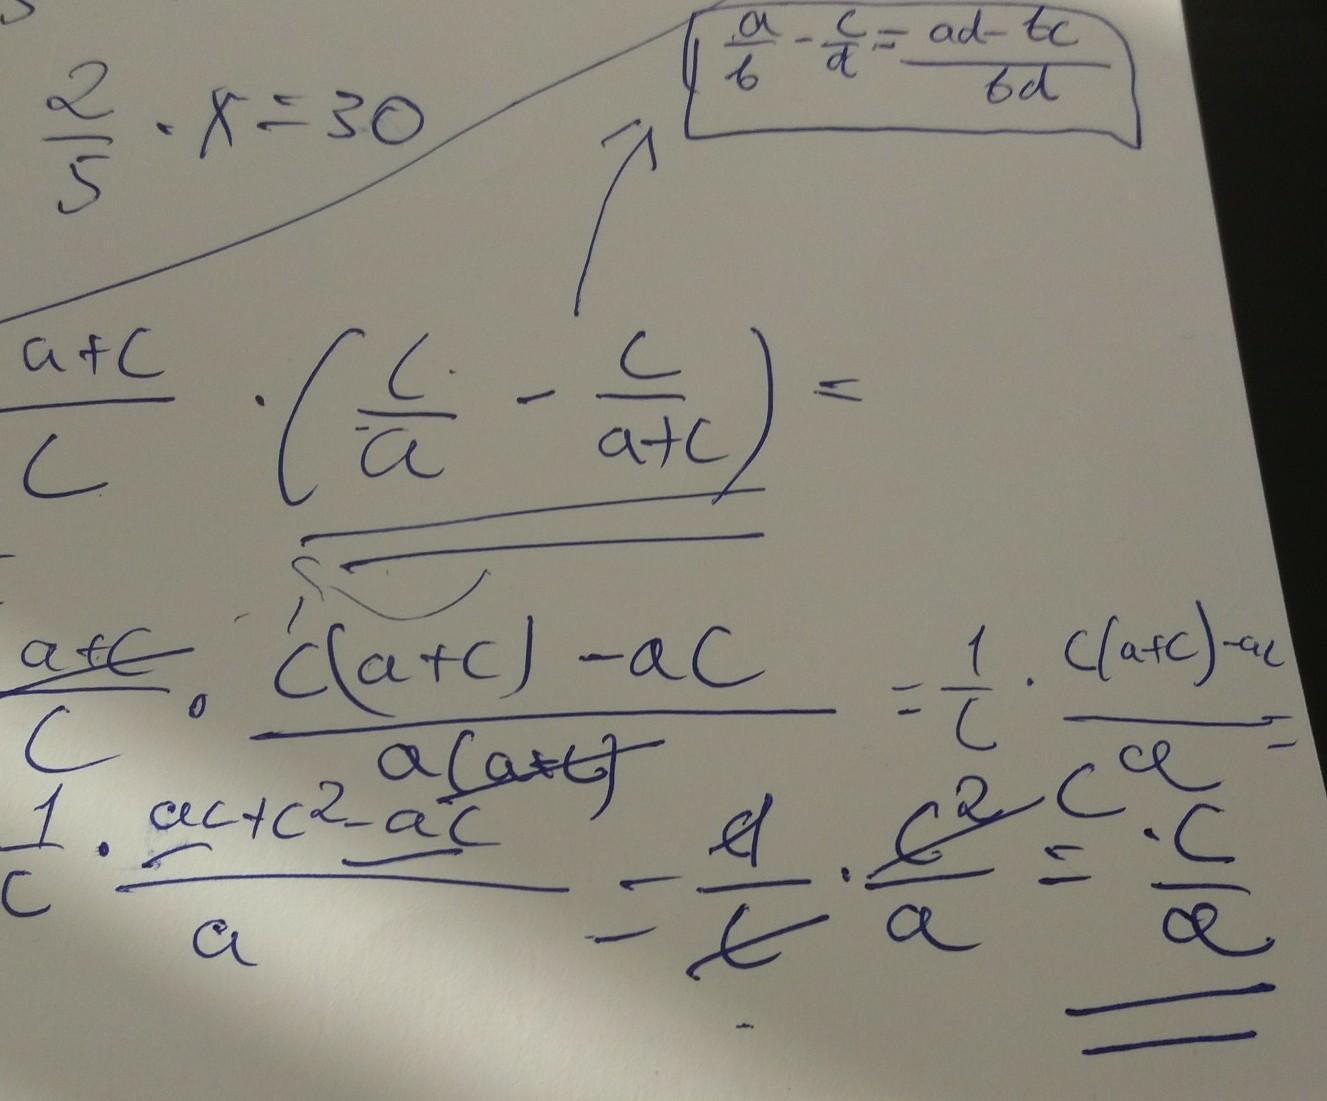 a/b - c/d = ad-bc/bd
2/5 · x = 30
a+c/c · (c/a - c/a+c) =
a+c/c · c(a+c)-ac/a(a+c) = 1/c · c(a+c)-ac/a =
1/c · ac+c²-ac/a = 1/c · c²/a c = ·c/a